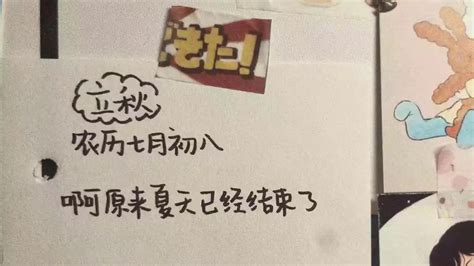 きた!
立秋
农历七月初八
啊原来夏天已经结束了